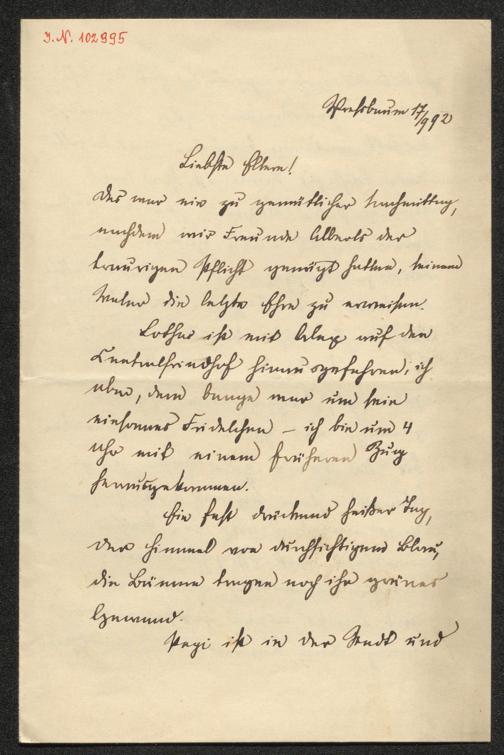 I. N. 102995
Pressbaum 17/9 92
Liebste Eltern!
Das war ein zu gemütlicher Nachmittag,
nachdem wir Freunde Alberts der
traurigen Pflicht genügt hatten, seinem
Vater die letzte Ehre zu erweisen.
Lothar ist mit Alex auf den
Centralfriedhof hinausgefahren, ich
aber, dem bange war um sein
einsames Fridelchen – ich bin um 4
Uhr mit einem früheren Zug
herausgekommen.
Ein fast drückend heißer Tag,
der Himmel von durchsichtigem Blau,
die Bäume tragen noch ihr grünes
Gewand.
ist in der Stadt und